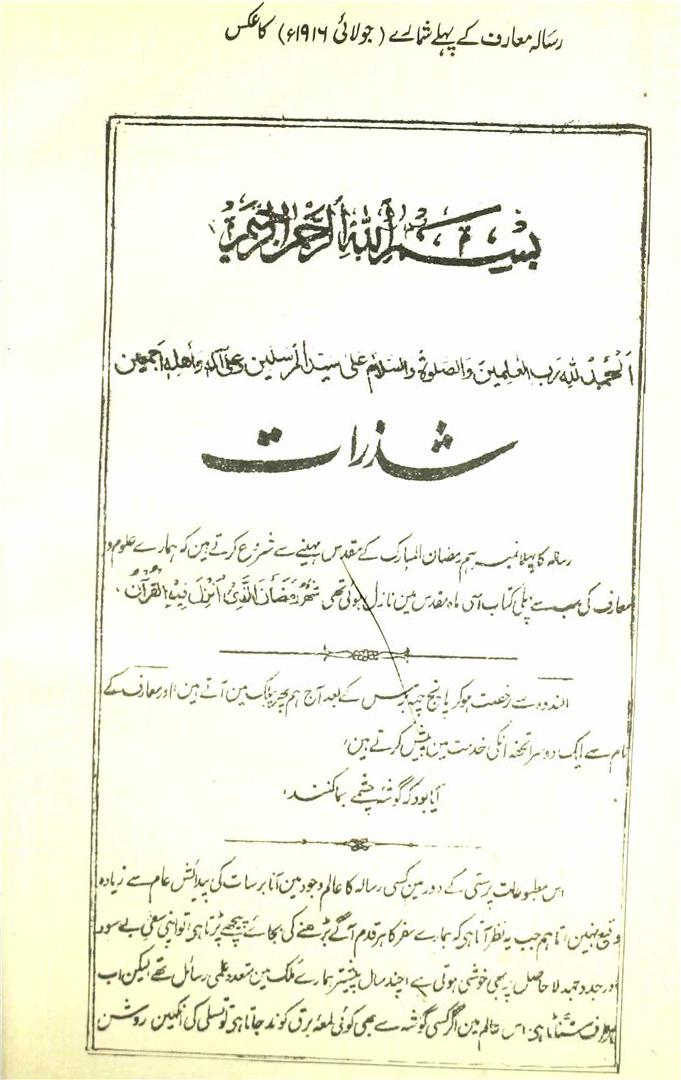 رسالہ معارف کے پہلے شمارے (جولائی ۱۹۱۶ء) کا عکس
بِسْمِ اللّٰهِ الرَّحْمٰنِ الرَّحِيْمِ
اَلْحَمْدُ لِلّٰهِ رَبِّ الْعٰلمِينَ وَالصلوة والسلام على سيد المرسلين وعلى آله واهله اجمعين
شذرات
رسالہ کا پہلا نمبر ہم رمضان المبارک کے مقدس مہینے سے شروع کرتے ہین کہ ہمارے علوم و
معارف کی سب سے پہلی کتاب اسی ماہ مقدس مین نازل ہوئی تھی شَهْرُ رَمَضَانَ الَّذِيْ اُنْزِلَ فِيْهِ الْقُرْآنُ،
الندوہ سے رخصت ہوکر پانچ چھ برس کے بعد آج ہم پھر پبلک مین آتے ہین، اور معارف کے
نام سے ایک دوسرا تحفہ انکی خدمت مین پیش کرتے ہین،
آیا بود کہ گوشۂ چشمے بما کنند،
اس مطبوعات پرستی کے دور مین کسی رسالہ کا عالم وجود مین آنا برسات کی پیدائش عام سے زیادہ
وقیع نہین، تاہم جب یہ نظر آتا ہی کہ ہمارے سفر کا ہر قدم آگے بڑھنے کی بجائے پیچھے پڑتا ہی، تو اپنی سعی بے سود
اور جدوجہد لا حاصل پر بھی خوشی ہوتی ہے، چند سال پیشتر ہمارے ملک مین متعدد علمی رسائل تھے لیکن اب
ہر طرف سناٹا ہی، اس عالم مین اگر کسی گوشہ سے بھی کوئی لمعۂ برق کوند جاتا ہی تو تسلی کی آنکھین روشن